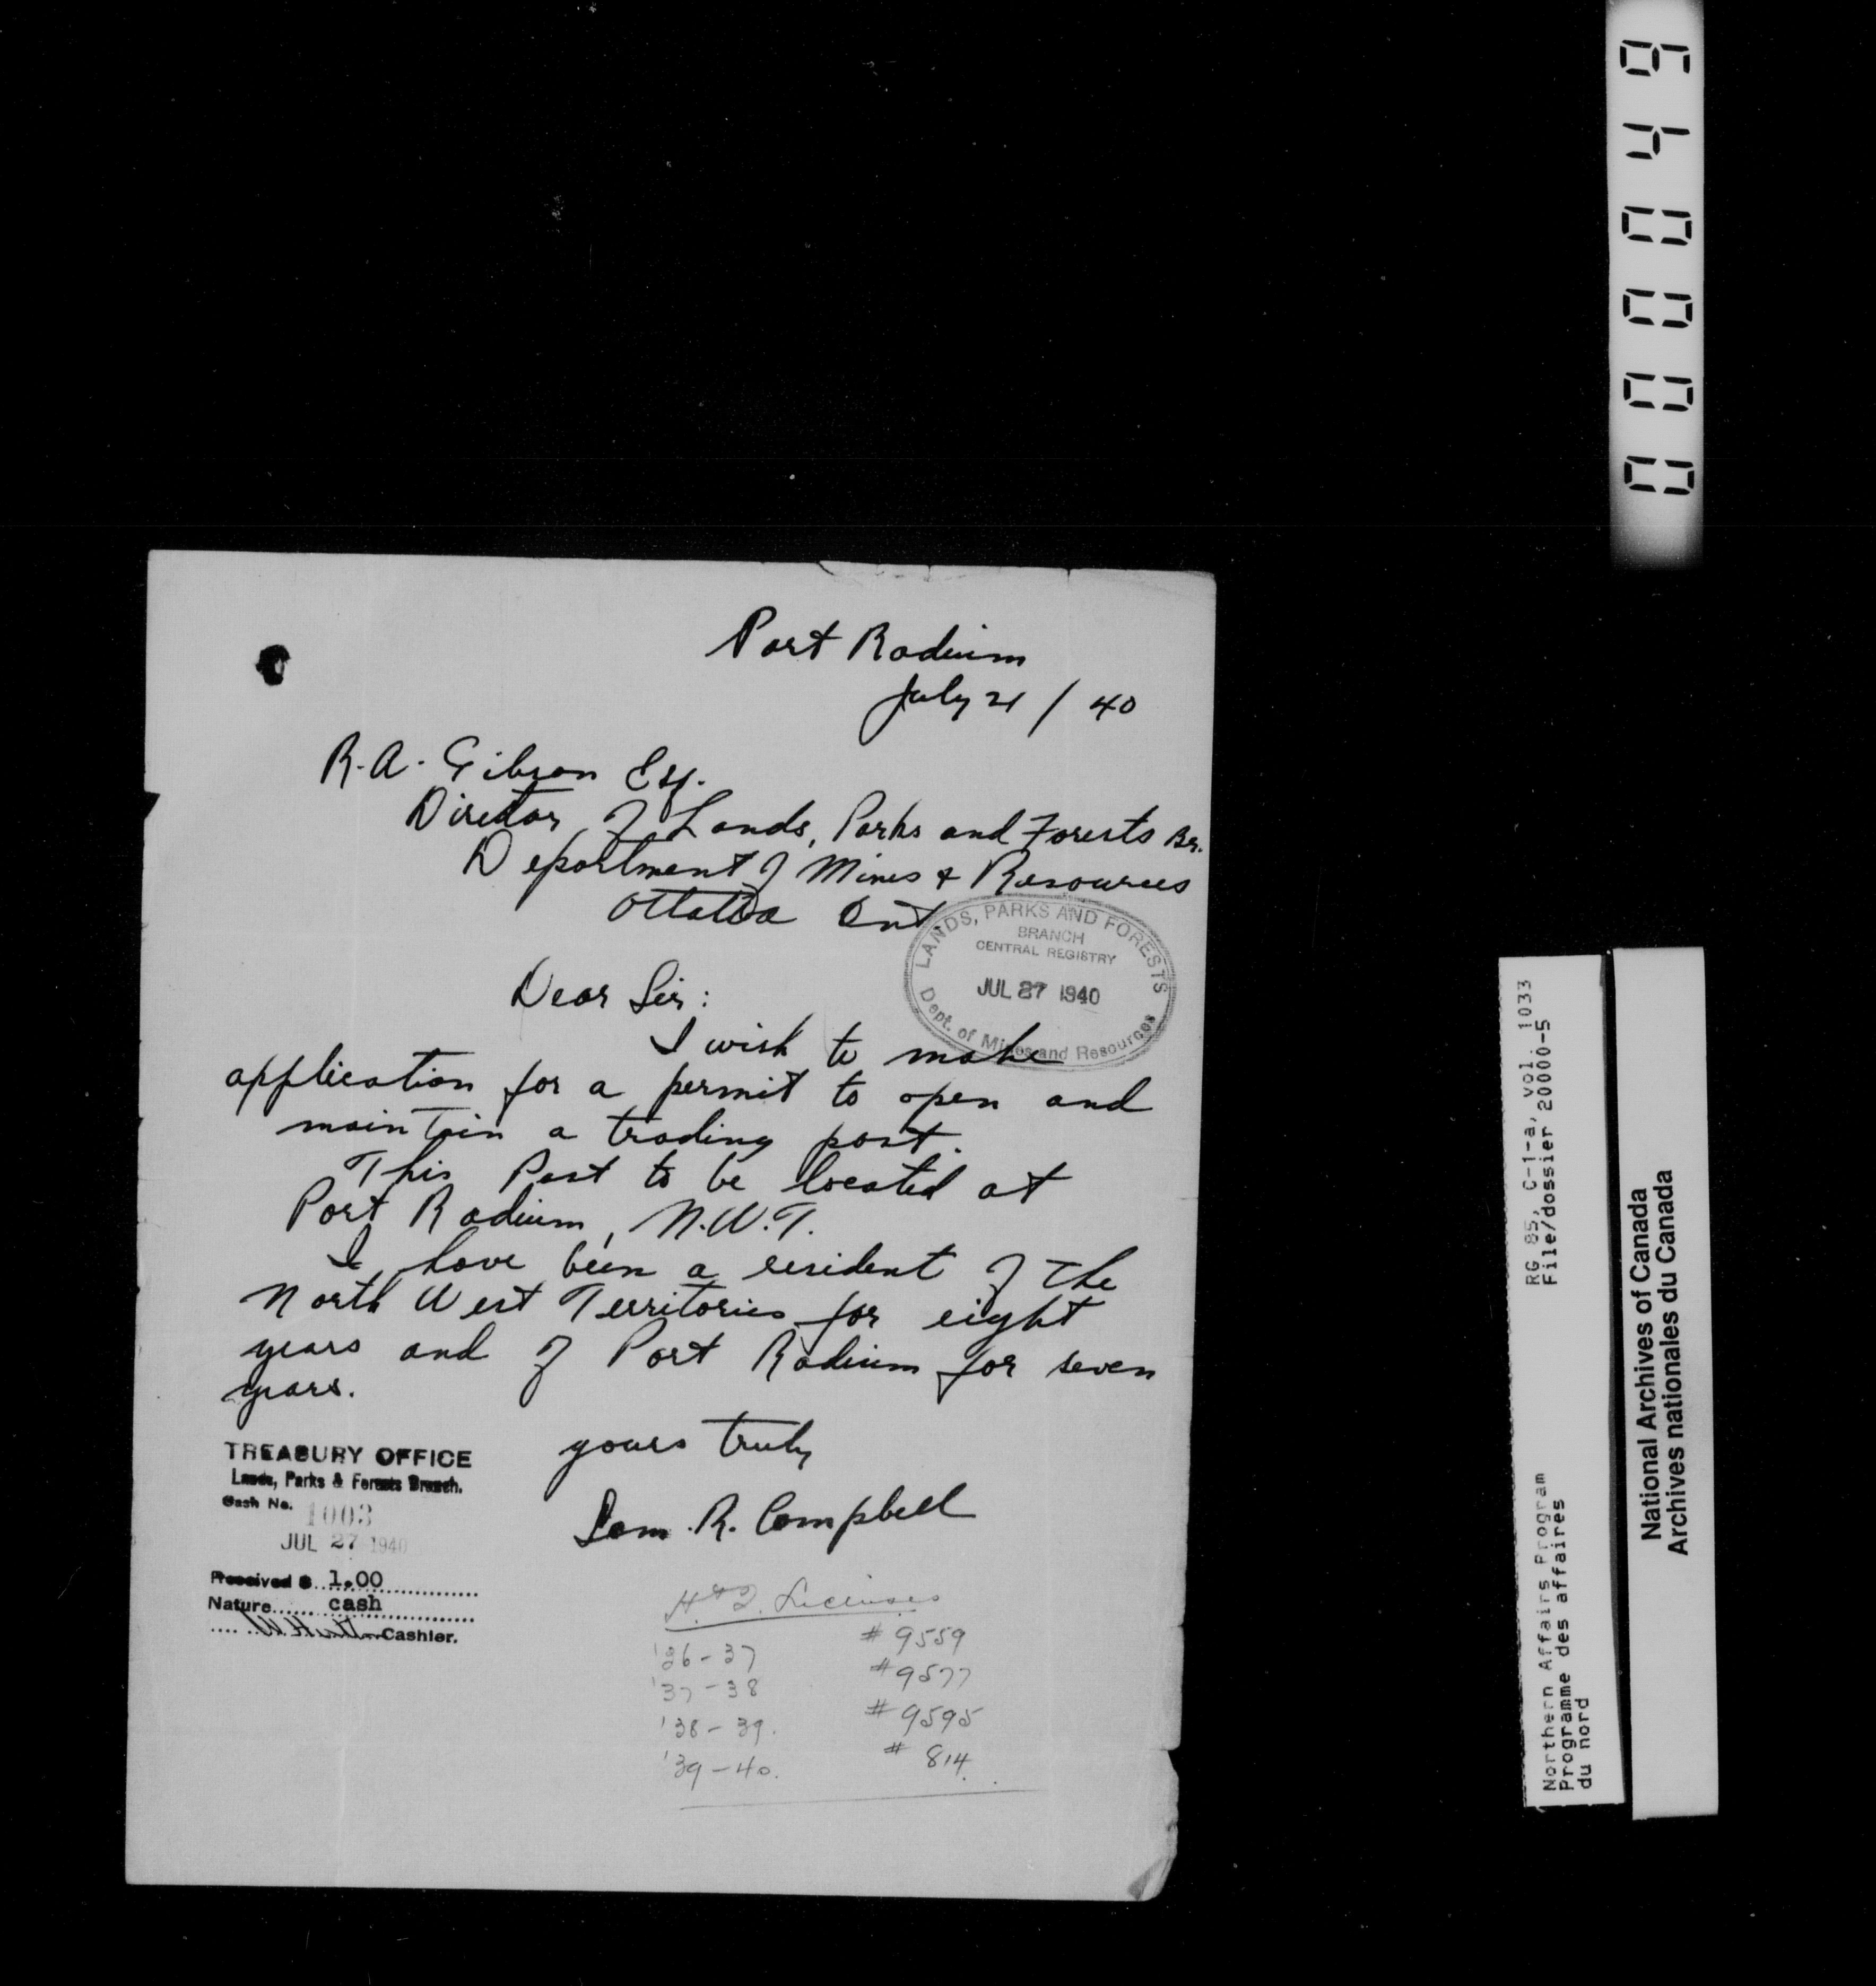 Port Radium
July 21 / 40
R. A. Gibson Esq.
Director of Lands, Parks and Forests Br.
Department of Mines & Resources
Ottawa Ont.
LANDS, PARKS AND FORESTS
BRANCH
CENTRAL REGISTRY
JUL 27 1940
Dept. of Mines and Resources
Dear Sir:
I wish to make
application for a permit to open and
maintain a trading post.
This Post to be located at
Port Radium, N.W.T.
I have been a resident of the
North West Territories for eight
years and of Port Radium for seven
years.
yours truly
Sam. R. Campbell
TREASURY OFFICE
Lands, Parks & Forests Branch.
Cash No. 1003
JUL 27 1940
Received $ 1.00
Nature cash
Cashier.
H & T. Licenses
'36-37 # 9559
'37-38 # 9577
'38-39. # 9595
'39-40. # 814.
RG 85, C-1-a, vol. 1033
File/dossier 20000-5
Northern Affairs Program
Programme des affaires
du nord
National Archives of Canada
Archives nationales du Canada